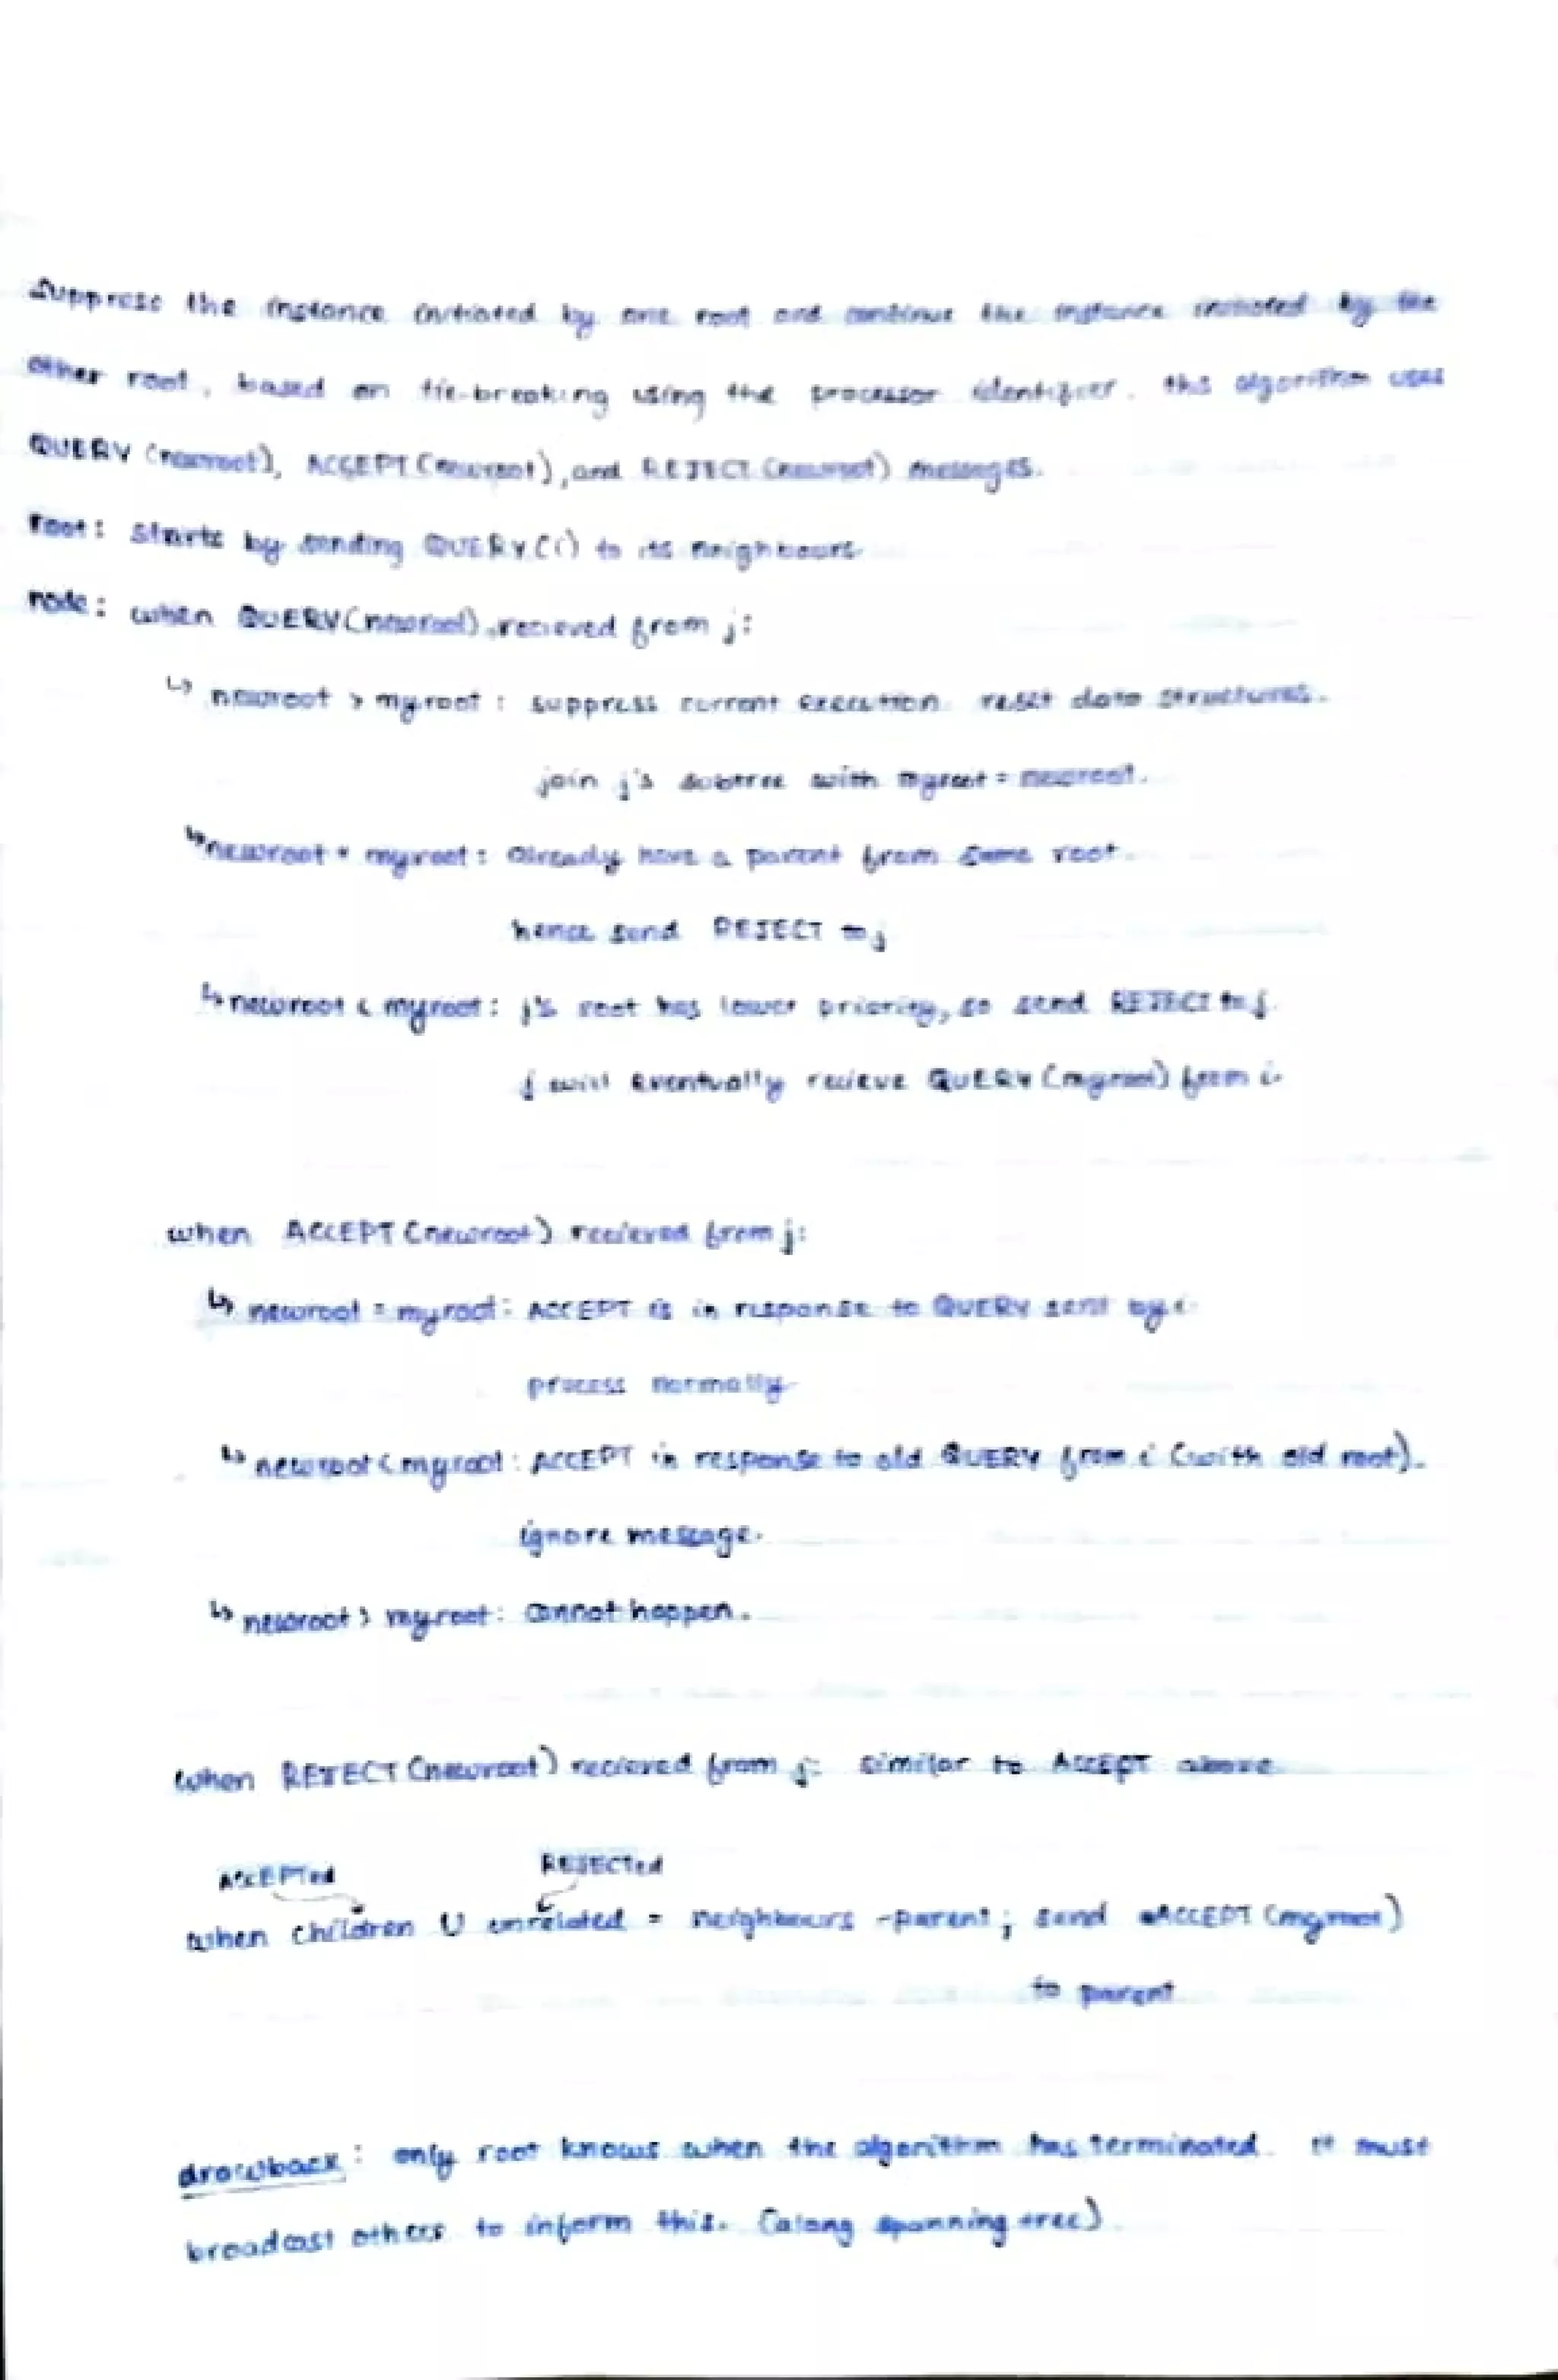 Suppress the instance initiated by one root and continue the instance initiated by the
other root, based on tie-breaking using the processor identifier. this algorithm uses
QUERY (newroot), ACCEPT (newroot), and REJECT (newroot) messages.
root: starts by sending QUERY(i) to its neighbours
node: when QUERY(newroot) recieved from j:
↳ newroot > myroot: suppress current execution. reset data structures.
join j's subtree with myroot = newroot.
↳ newroot = myroot: Already have a parent from same root.
hence send REJECT to j
↳ newroot < myroot: j's root has lower priority, so send REJECT to j.
j will eventually recieve QUERY (myroot) from i.
when ACCEPT (newroot) recieved from j:
↳ newroot = myroot: ACCEPT is in response to QUERY sent by i
process normally
↳ newroot < myroot: ACCEPT in response to old QUERY from i (with old root).
ignore message.
↳ newroot > myroot: cannot happen.
when REJECT (newroot) recieved from j: similar to ACCEPT above
ACCEPTed REJECTed
when children U unrelated = neighbours - parent; send ACCEPT (myroot)
to parent
drawback: only root knows when the algorithm has terminated. it must
broadcast others to inform this. (along spanning tree)